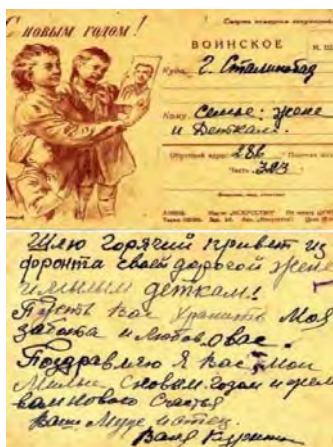 С НОВЫМ ГОДОМ!
Смерть немецким оккупантам
ВОИНСКОЕ
Куда г. Сталинобад
Кому Семье: жене
и Деткам.
Обратный адрес: 286
часть 723
Шлю горячий привет из
фронта своей дорогой жене
и милым деткам!
Пусть вас хранить моя
забота и любовь о вас.
Поздравляю я вас мои
Милые с новым годом и
вам нового счастья
Ваш Муж и отец.
Валя